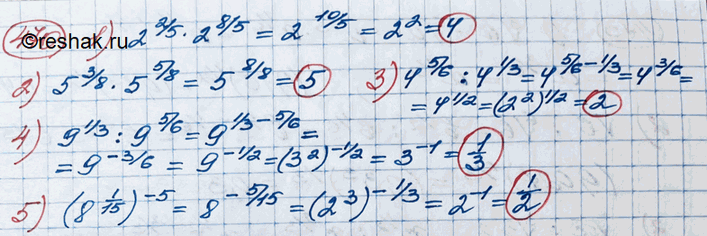 ©reshak.ru
1) 2^{2/5} · 2^{8/5} = 2^{10/5} = 2^2 = 4
2) 5^{3/8} · 5^{5/8} = 5^{8/8} = 5
3) 4^{5/6} : 4^{1/3} = 4^{5/6 - 1/3} = 4^{3/6} =
= 4^{1/2} = (2^2)^{1/2} = 2
4) 9^{1/3} : 9^{5/6} = 9^{1/3 - 5/6} =
= 9^{-3/6} = 9^{-1/2} = (3^2)^{-1/2} = 3^{-1} = 1/3
5) (8^{1/15})^{-5} = 8^{-5/15} = (2^3)^{-1/3} = 2^{-1} = 1/2